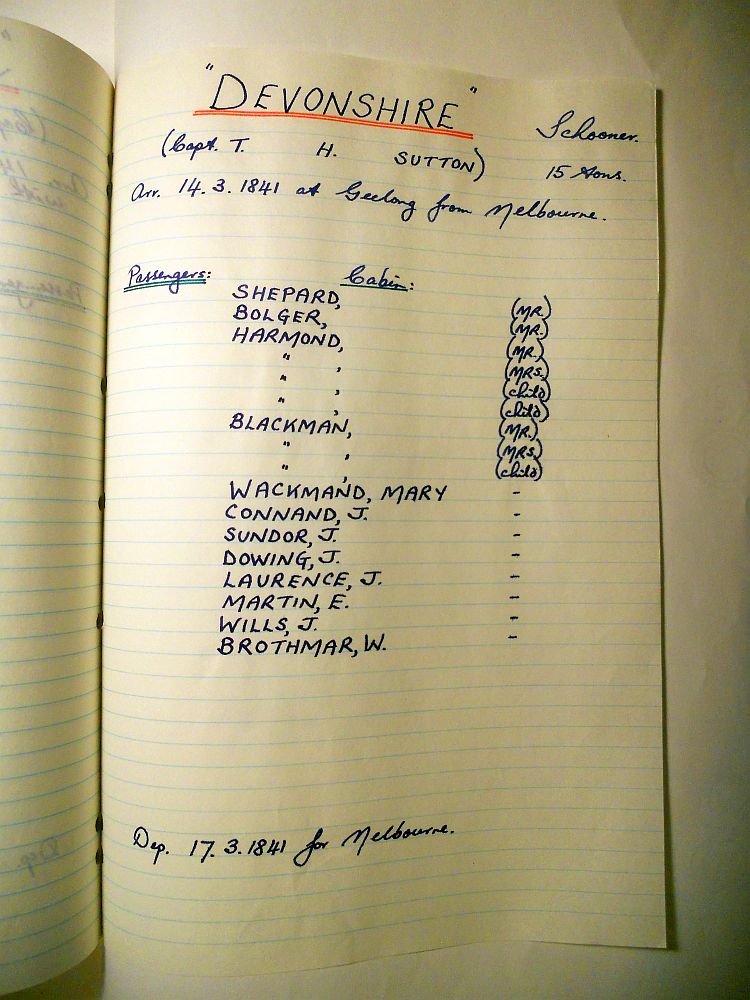 "DEVONSHIRE"
Schooner.
(Capt. T. H. SUTTON) 15 tons.
Arr. 14.3.1841 at Geelong from Melbourne.
Passengers: Cabin:
SHEPARD, (MR.)
BOLGER, (MR.)
HARMOND, (MR.)
" , (MRS.)
" , (child)
" , (child)
BLACKMAN, (MR.)
" , (MRS.)
" , (child)
WACKMAND, MARY -
CONNAND, J. -
SUNDOR, J. -
DOWING, J. -
LAURENCE, J. -
MARTIN, E. -
WILLS, J. -
BROTHMAR, W. -
Dep. 17.3.1841 for Melbourne.